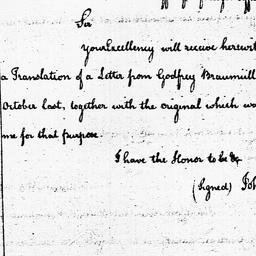 Sir
Your Excellency will receive herewit
a Translation of a Letter from Godfrey Braumiill
October last, together with the original which wa
me for that purpose
I have the Honor to be &
(Signed) Joh